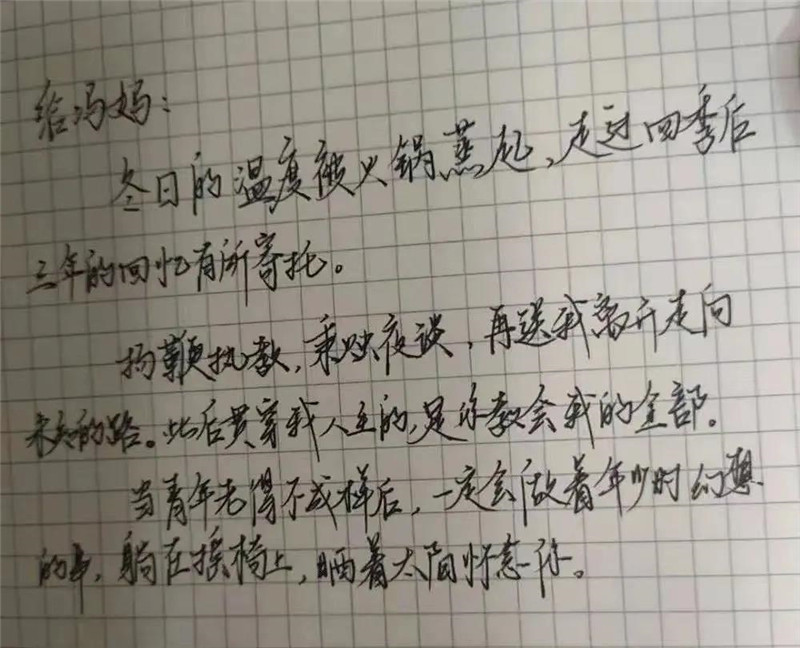 给冯妈：
冬日的温度被火锅蒸起，走过四季后
三年的回忆有所寄托。
扬鞭执教，秉烛夜谈，再送我离开走向
未知的路。此后贯穿我人生的，是你教会我的全部。
当青年老得不成样后，一定会做着年少时幻想
的事，躺在摇椅上，晒着太阳怀念你。